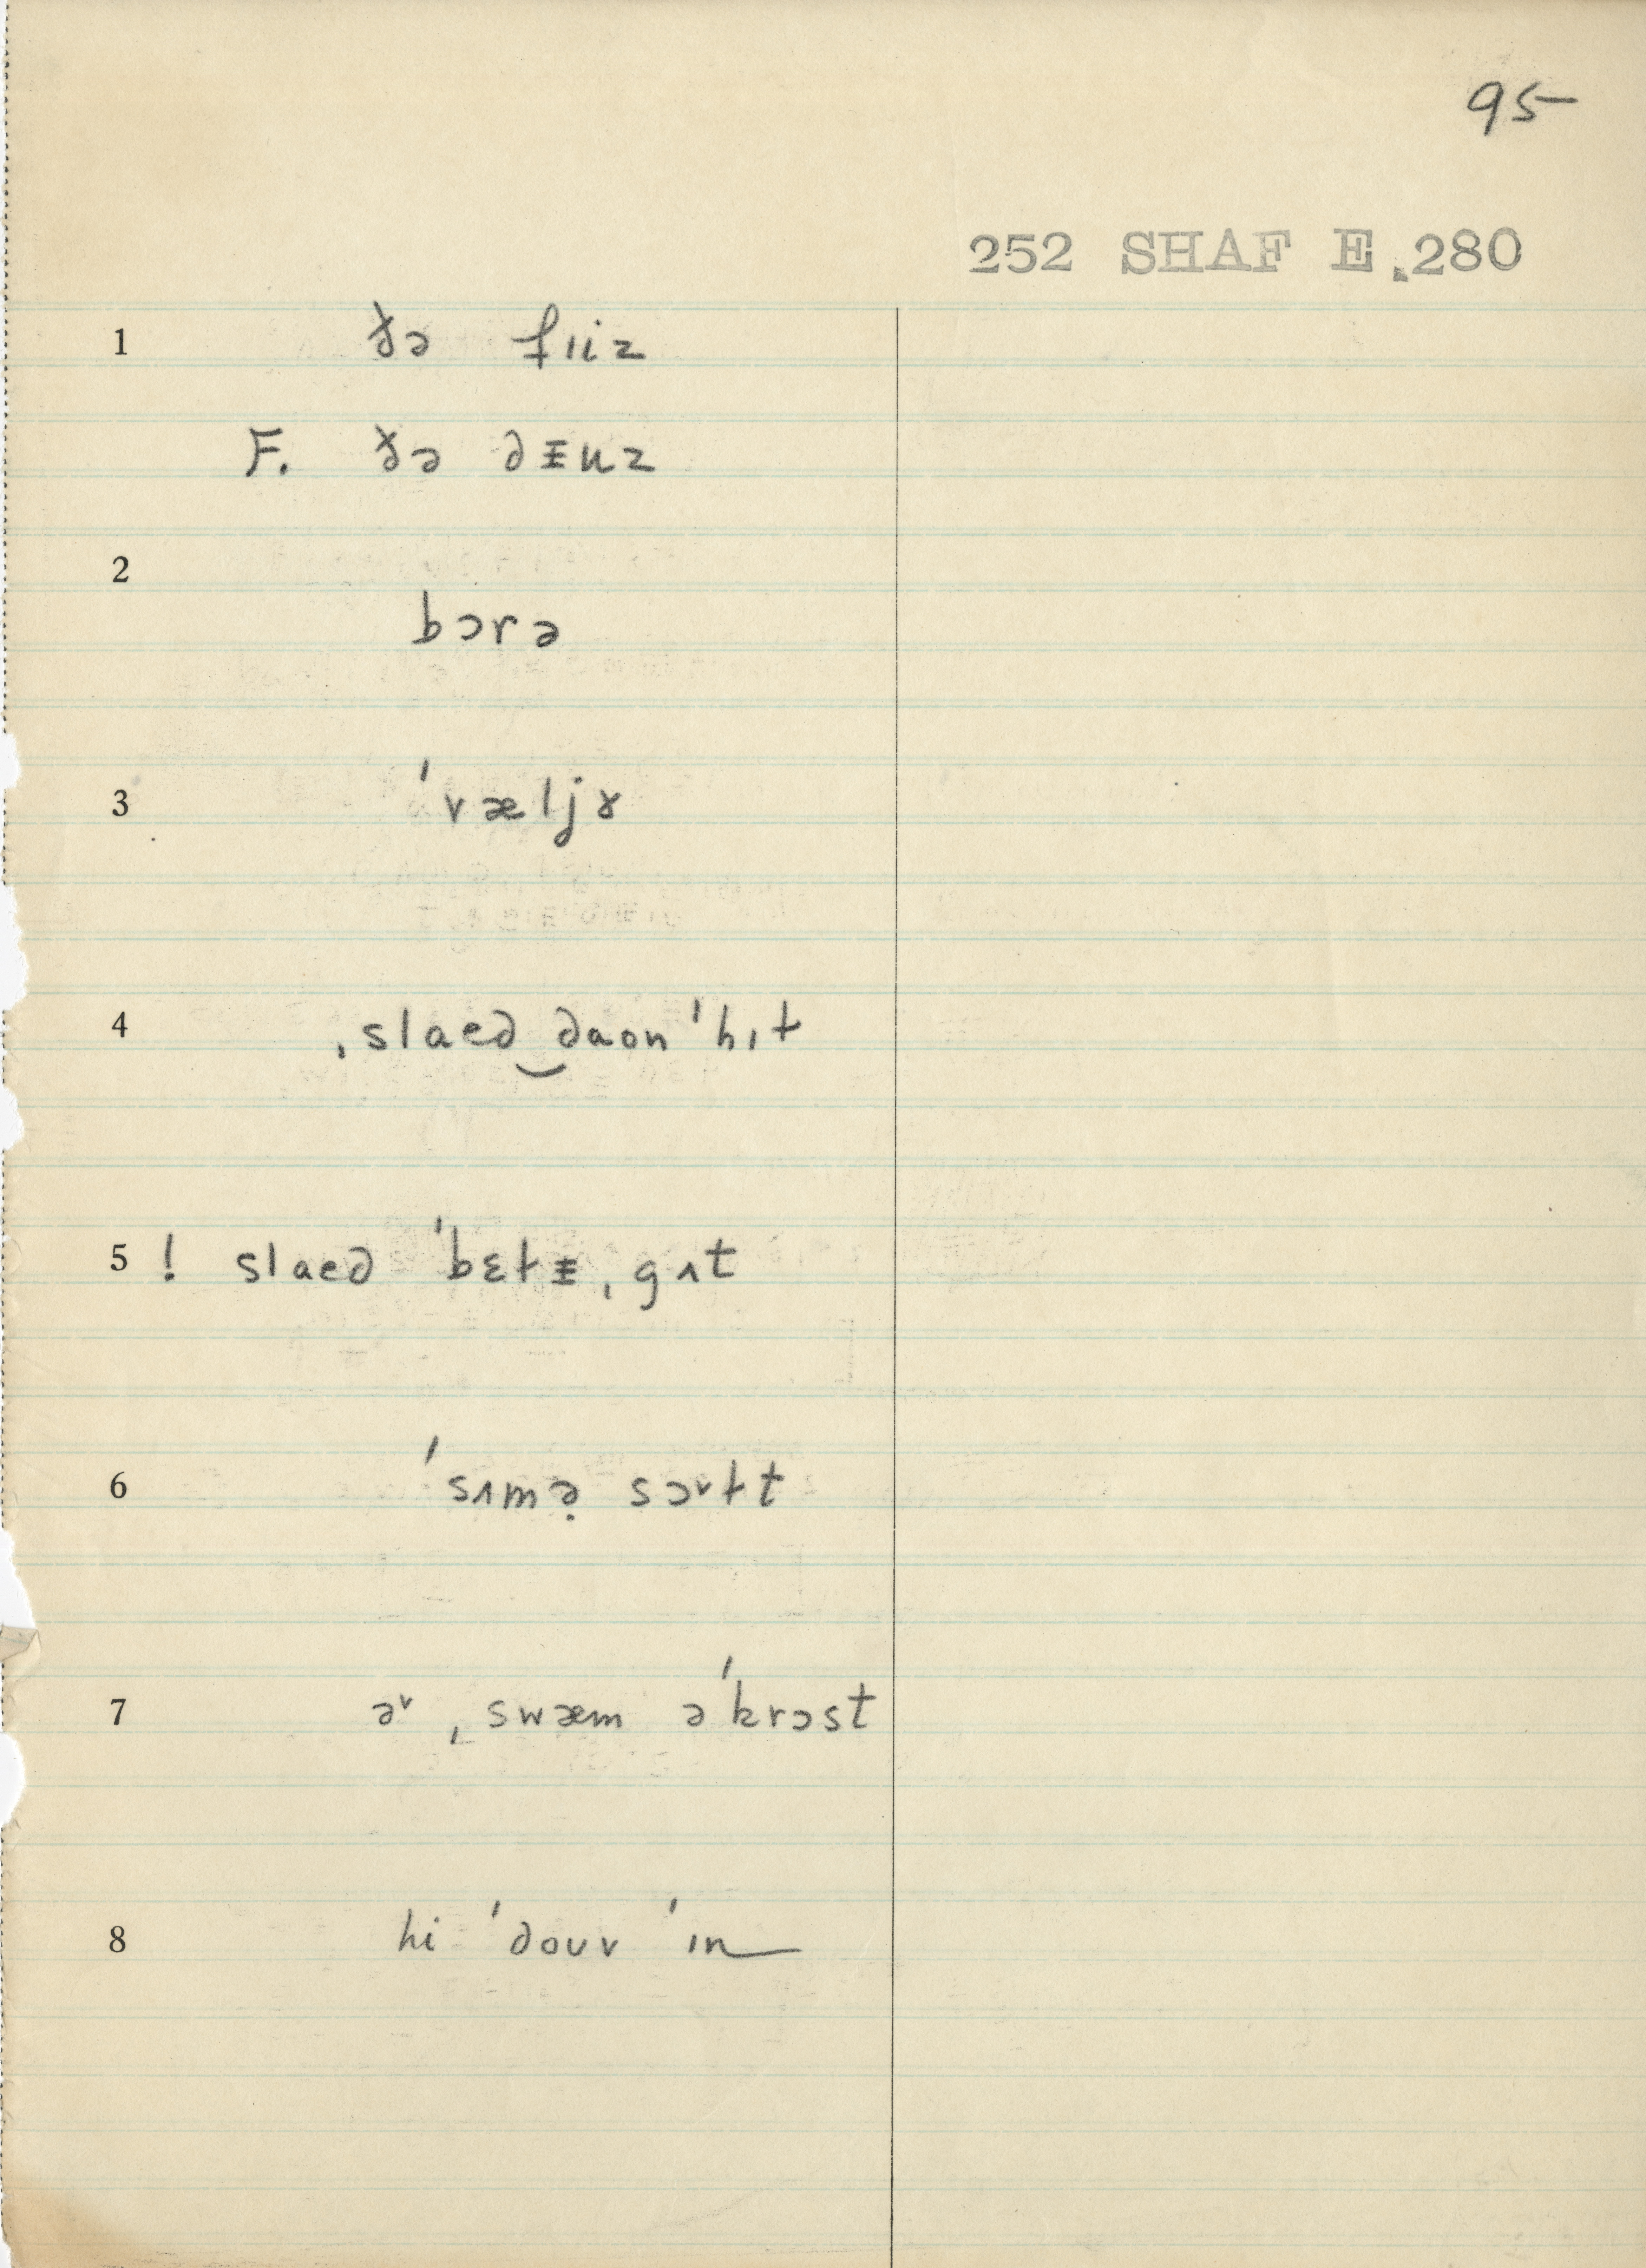 95
252 SHAF E.280
1 ðə fɪiz
F. ðə dᵻuz
2
bɔrə
3 ˈvæljɤ
4 ˌslaed‿daon ˈhɪt
5 ! slaed ˈbɛt̬ᵻˌgʌt
6 ˈsʌmə̣ sɔᵛt̬t
7 əᵛ ˌswæm əˈkrɔst
8 hi ˈdouv ˈɪn